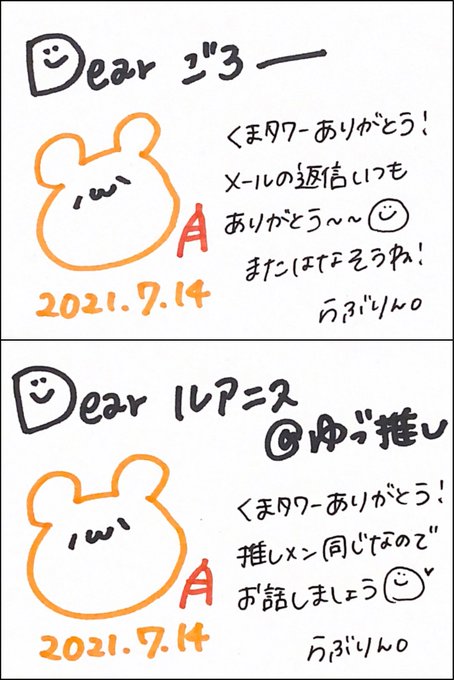 Dear ごろー
くまタワーありがとう!
メールの返信いつも
ありがとう〜〜
またはなそうね!
2021.7.14
らぶりん。
Dear ルアニス
@ゆづ推し
くまタワーありがとう!
推しメン同じなので
お話しましょう
2021.7.14
らぶりん。